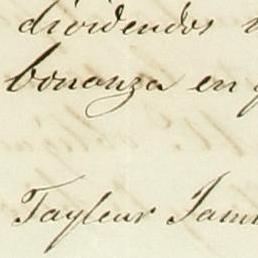 dividendos
bonanza en
Tayleur Jam